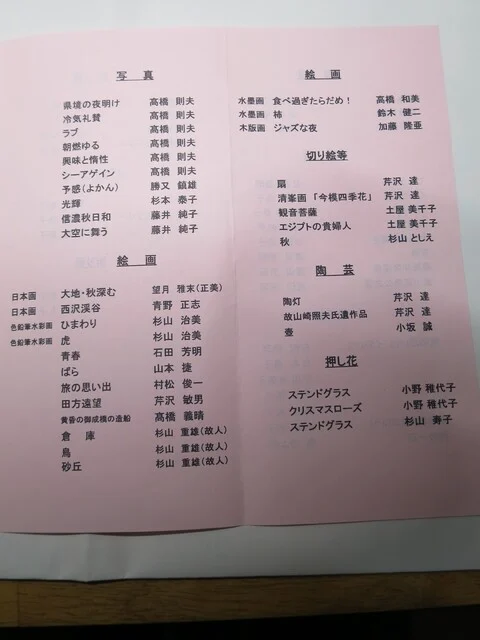 写真
県境の夜明け 髙橋 則夫
冷気礼賛 髙橋 則夫
ラブ 髙橋 則夫
朝燃ゆる 髙橋 則夫
興味と惰性 髙橋 則夫
シーアゲイン 髙橋 則夫
予感(よかん) 勝又 鎮雄
光輝 杉本 泰子
信濃秋日和 藤井 純子
大空に舞う 藤井 純子
絵画
日本画 大地・秋深む 望月 雅末(正美)
日本画 西沢渓谷 青野 正志
色鉛筆水彩画 ひまわり 杉山 治美
色鉛筆水彩画 虎 杉山 治美
青春 石田 芳明
ばら 山本 捷
旅の思い出 村松 俊一
田方遠望 芹沢 敏男
黄昏の御成橋の造船 髙橋 義晴
倉庫 杉山 重雄(故人)
鳥 杉山 重雄(故人)
砂丘 杉山 重雄(故人)
絵画
水墨画 食べ過ぎたらだめ! 高橋 和美
水墨画 柿 鈴木 健二
木版画 ジャズな夜 加藤 隆亜
切り絵等
扇 芹沢 達
清峯画 「今様四季花」 芹沢 達
観音菩薩 土屋 美千子
エジプトの貴婦人 土屋 美千子
秋 杉山 としえ
陶芸
陶灯 芹沢 達
故山崎照夫氏遺作品 芹沢 達
壺 小坂 誠
押し花
ステンドグラス 小野 稚代子
クリスマスローズ 小野 稚代子
ステンドグラス 杉山 寿子